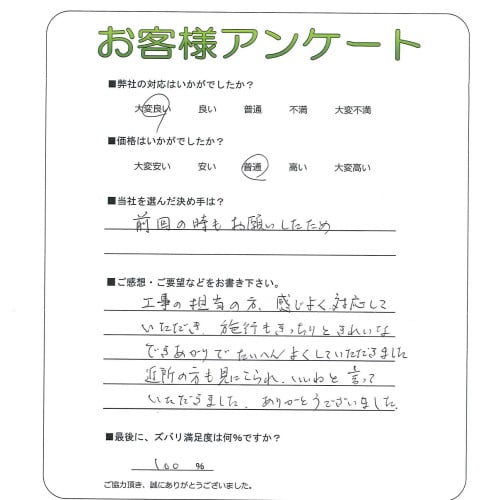 お客様アンケート
■弊社の対応はいかがでしたか？
大変良い 良い 普通 不満 大変不満
■価格はいかがでしたか？
大変安い 安い 普通 高い 大変高い
■当社を選んだ決め手は？
前回の時もお願いしたため
■ご感想・ご要望などをお書き下さい。
工事の担当の方、感じよく対応して
いただき、施行もきっちりときれいな
できあがりでたいへんよくしていただきました
近所の方も見にこられ、いいわと言って
いただきました。ありがとうございました。
■最後に、ズバリ満足度は何%ですか？
100 %
ご協力頂き、誠にありがとうございました。